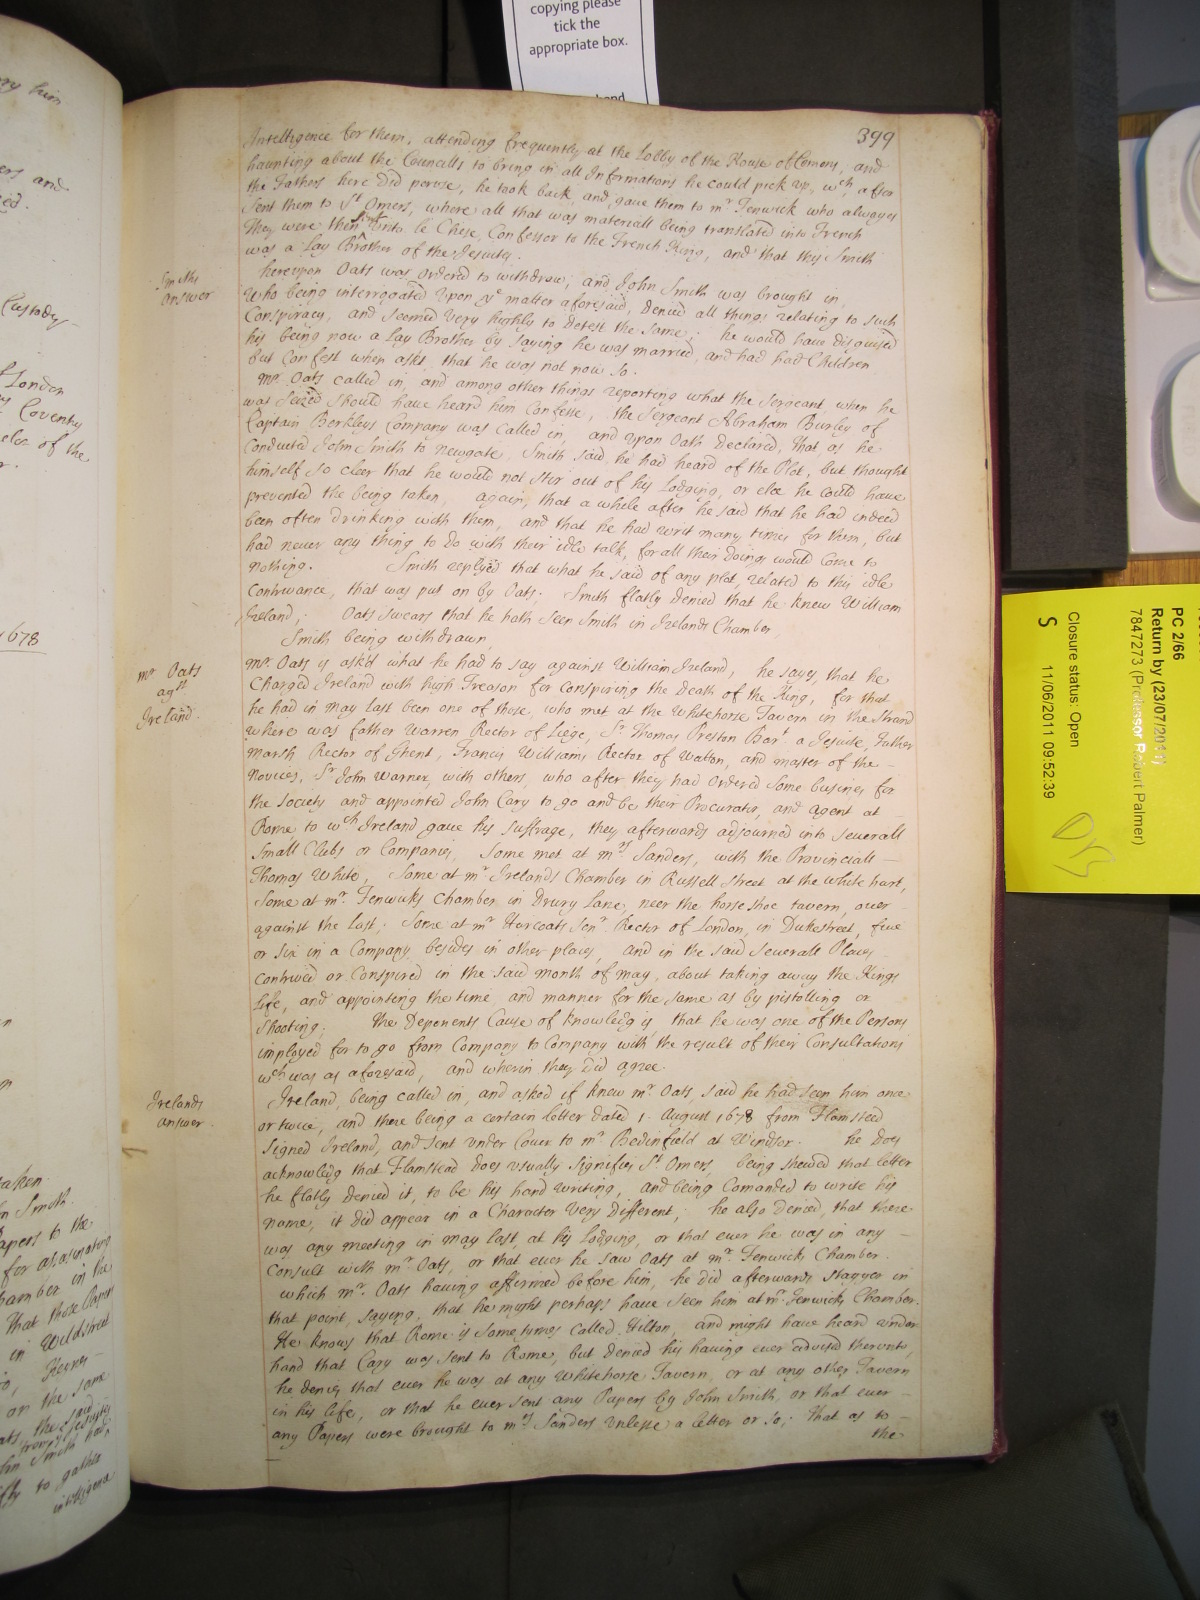 copying please
tick the
appropriate box.
399
Intelligence for them, attending frequently at the Lobby of the House of Comons, and
haunting about the Councills to bring in all Informations he could pick up, wch after
the Fathers here did peruse, he took back, and gave them to mr Fenwick who always
sent them to St Omers, where all that was materiall being translated into French
They were then sent unto le Chese, Confessor to the French King, and that this Smith
was a Lay Brother of the Jesuits.
Smiths
answer
hereupon Oats was ordered to withdraw, and John Smith was brought in,
who being interrogated upon ye matter aforesaid, denied all things relating to such
Conspiracy, and seemed very highly to detest the same; he would have disguised
his being now a Lay Brother by saying he was married, and had had Children
but Confest when askt, that he was not now so.
Mr. Oats called in, and among other things reporting what the Sergeant, when he
was seized should have heard him Confesse, the Sergeant Abraham Burley of
Captain Berkleys Company was called in, and upon Oath Declared, that as he
Conducted John Smith to newgate, Smith said he had heard of the Plot, but thought
himself so cleer that he would not stir out of his Lodging, or else he could have
prevented the being taken, again, that a while after he said that he had indeed
been often drinking with them, and that he had writ many times for them, but
had never any thing to do with their idle talk, for all their doings would Come to
nothing. Smith replyed that what he said of any plot, related to this idle
Contrivance, that was put on by Oats: Smith flatly denied that he knew William
Ireland; Oats swears that he hath seen Smith in Irelands Chamber,
Smith being withdrawn
mr Oats
agst
Ireland.
Mr. Oats is askd what he had to say against William Ireland, he sayes that he
Charged Ireland with high Treason for conspiring the Death of the King, for that
he had in may last been one of those, who met at the Whitehorse Tavern in the Strand
where was father Warren Rector of Liege, Sr Thomas Preston Bart a Jesuite, Father
Marsh Rector of Ghent, Francis Williams Rector of Watton, and master of the
novices, Sr John Warner, with others, who after they had Ordered some busines for
the Society and appointed John Cary to go and be their Procurator, and Agent at
Rome, to wch Ireland gave his Suffrage, they afterwards adjourned into severall
Small Clubs or Companies, Some met at mrs Sanders, with the Provinciall
Thomas White, Some at mr Irelands Chamber in Russell street at the white hart,
Some at mr. Fenwicks Chamber in Drury Lane, neer the horse shoe tavern, over
against the last; Some at mr Harcoats Senr Rector of London, in Duke street, five
or six in a Company, besides in other places, and in the said severall Places
Contrived or Conspired in the said month of may, about taking away the Kings
Life, and appointing the time, and manner for the same as by pistolling or
Shooting. The Deponents Cause of knowledg is, that he was one of the Persons
imployed for to go from Company to Company with the result of their Consultations
wch was as aforesaid, and wherin they did agree.
Irelands
answer.
Ireland, being called in, and asked if knew mr Oats, said he had seen him once
or twice, and there being a certain letter dated 1. August 1678 from Flamsted
Signed Ireland, and sent under Cover to mr Bedinfield at Windsor. he does
acknowledg that Flamstead does usually signifies St Omers, being shewed that letter
he flatly denied it, to be his hand writing, and being Comanded to write his
name, it did appear in a Character very Different; he also denied, that there
was any meeting in may last, at his Lodging, or that ever he was in any
Consult with mr. Oats, or that ever he saw Oats at mr Fenwicks Chamber.
which mr. Oats having affirmed before him, he did afterwards stagger in
that point, saying, that he might perhaps have seen him at mr Fenwicks Chamber.
He knows that Rome is sometimes called Hilton, and might have heard under
hand that Cary was sent to Rome, but denied his having ever advised therunto,
he denies that ever he was at any Whitehorse Tavern, or at any other Tavern
in his life, or that he ever sent any Papers by John Smith, or that ever
any Papers were brought to mrs Sanders unlesse a letter or so; that as to
the
ry him
ers and
Custody
London
Coventry
else of the
1678
taken
Smith
Papers to the
for assasinating
Chamber in the
That those Papers
in Wildstreet
or the same
to gather
intelligence
PC 2/66
Return by (23/07/2011)
7847273 (Professor Robert Palmer)
Closure status: Open
S 11/06/2011 09:52:39